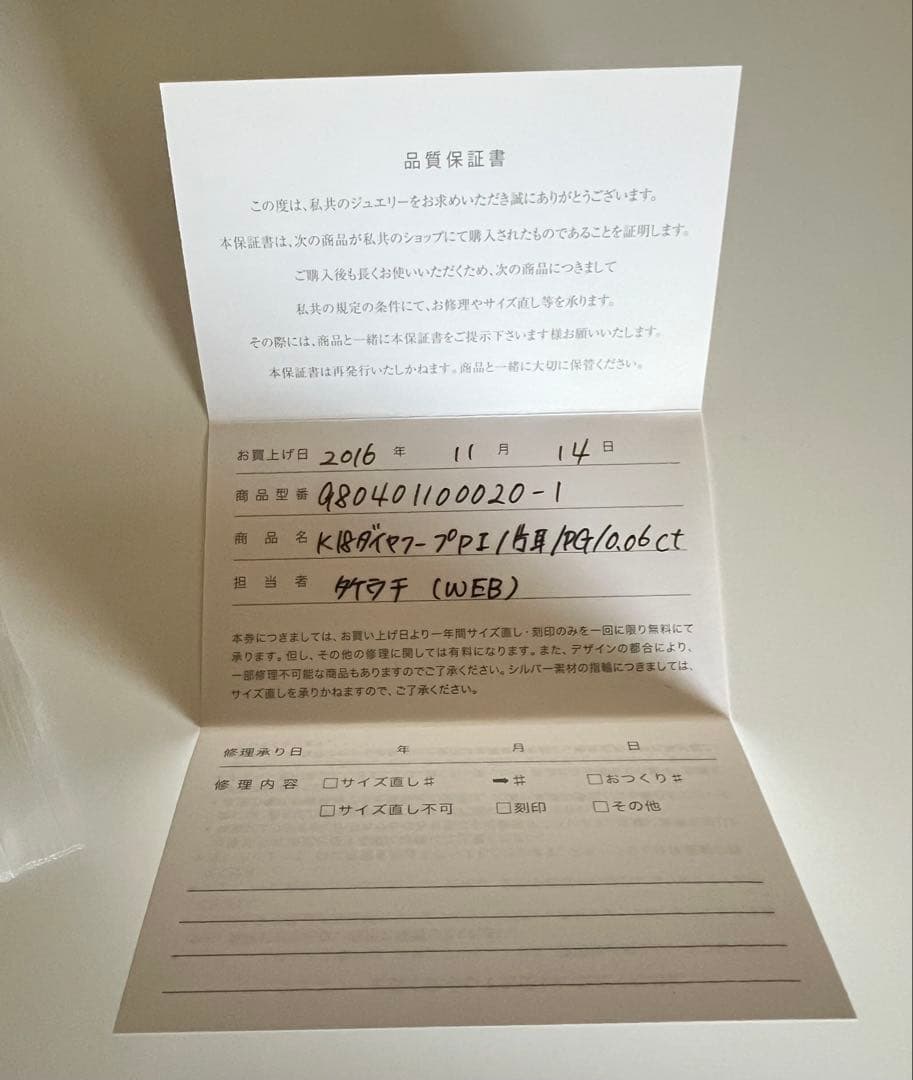 品質保証書
この度は、私共のジュエリーをお求めいただき誠にありがとうございます。
本保証書は、次の商品が私共のショップにて購入されたものであることを証明します。
ご購入後も長くお使いいただくため、次の商品につきまして
私共の規定の条件にて、お修理やサイズ直し等を承ります。
その際には、商品と一緒に本保証書をご提示下さいます様お願いいたします。
本保証書は再発行いたしかねます。商品と一緒に大切に保管ください。
お買上げ日 2016 年 11 月 14 日
商品型番 980401100020-1
商品名 K18ダイヤフープPI/片耳/PG/0.06ct
担当者 タケウチ (WEB)
本券につきましては、お買い上げ日より一年間サイズ直し・刻印のみを一回に限り無料にて
承ります。但し、その他の修理に関しては有料になります。また、デザインの都合により、
一部修理不可能な商品もありますのでご了承ください。シルバー素材の指輪につきましては、
サイズ直しを承りかねますので、ご了承ください。
修理承り日 年 月 日
修理内容 □サイズ直し# ➡# □おつくり#
□サイズ直し不可 □刻印 □その他